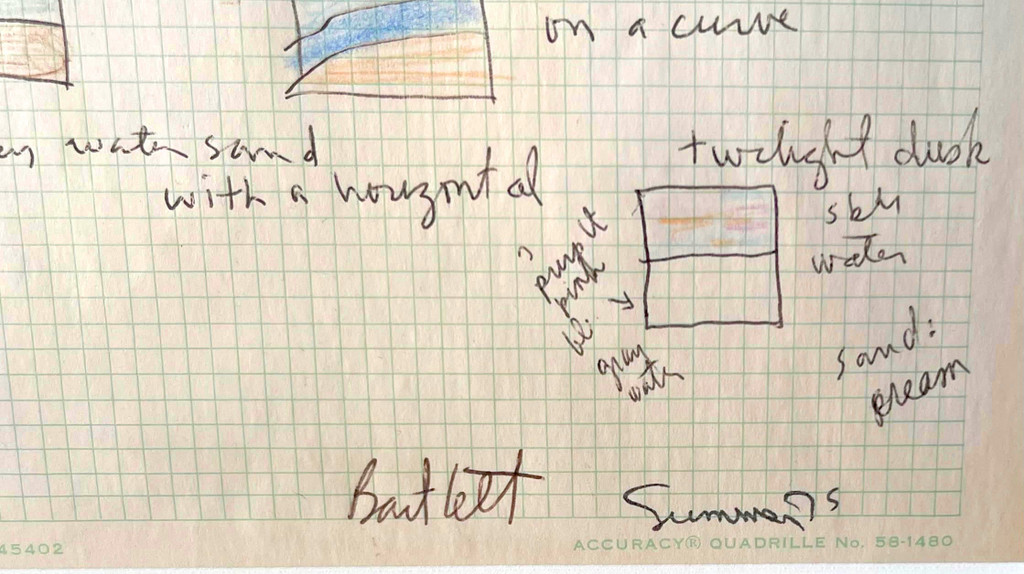 on a curve
water sand
with a horizontal
twilight dusk
sky
water
purple
pink
bl.
gray
water
sand:
cream
Bartlett
45402
ACCURACY® QUADRILLE No. 58-1480